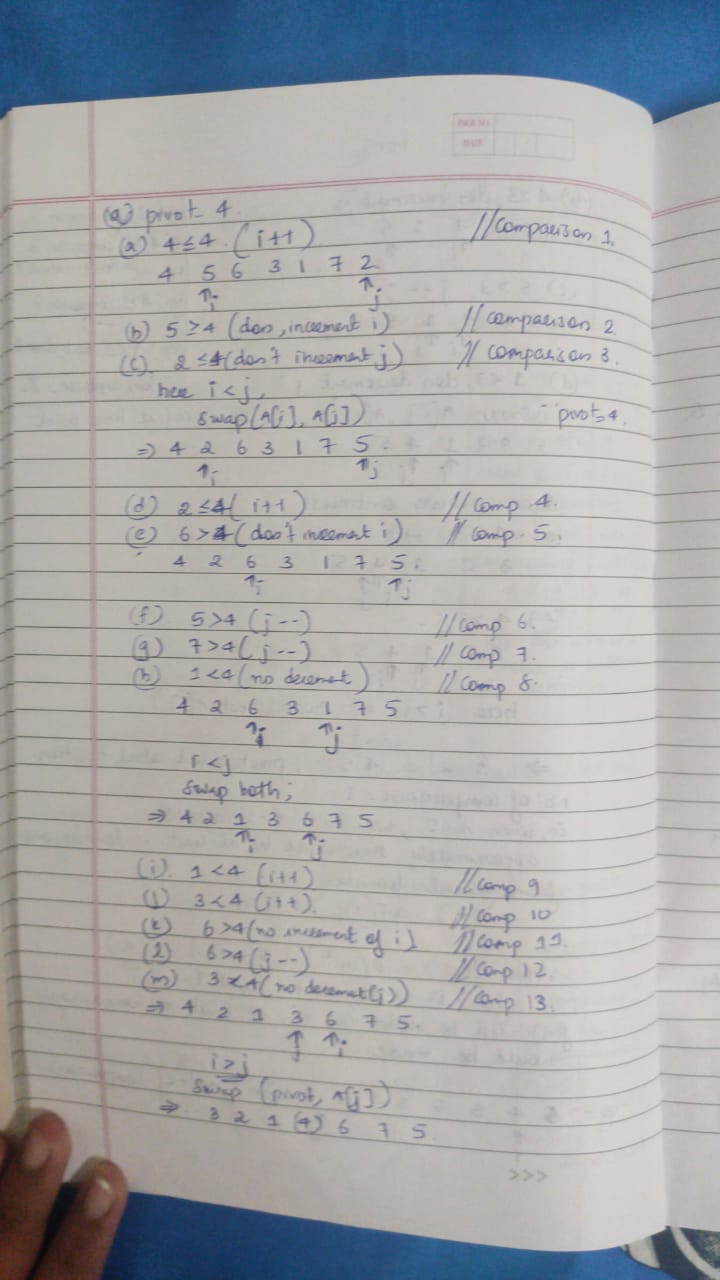 PAGE NO.
DATE
(a) pivot 4.
(a) 4≤4. (i++) //Comparison 1.
4 5 6 3 1 7 2
↑i ↑j
(b) 5≥4 (don, increment i) // Comparison 2
(c). 2≤4 (don't increment j) // Comparison 3.
here i<j,
Swap(A[i], A[j]) pivot=4.
=> 4 2 6 3 1 7 5.
↑i ↑j
(d) 2≤4 (i++) // Comp 4.
(e) 6>4 (don't increment i) // Comp. 5.
4 2 6 3 1 7 5
↑i ↑j
(f) 5>4 (j--) //Comp 6.
(g) 7>4 (j--) // Comp 7.
(h) 1<4 (no decement) // Comp 8.
4 2 6 3 1 7 5
↑i ↑j
i<j
Swap both;
=> 4 2 1 3 6 7 5
↑i ↑j
(i). 1<4 (i++) //Comp 9
(j) 3<4 (i++). // Comp 10
(k) 6>4 (no increment of i) // Comp 11.
(l) 6>4 (j--) // Comp 12.
(m) 3<4 (no decement(j)) //Comp 13.
=> 4 2 1 3 6 7 5.
↑j ↑i
i>j
Swap (pivot, A[j])
=> 3 2 1 (4) 6 7 5.
>>>